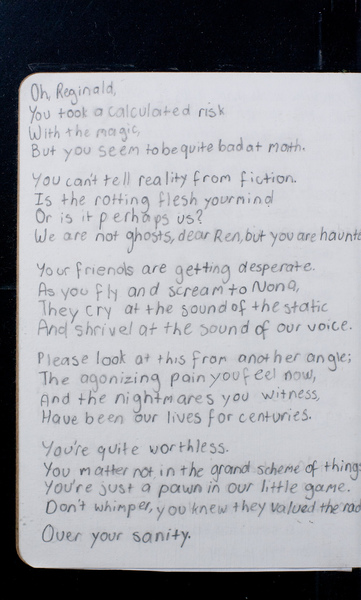 Oh, Reginald,
You took a calculated risk
With the magic,
But you seem to be quite bad at math.
You can't tell reality from fiction.
Is the rotting flesh your mind
Or is it perhaps us?
We are not ghosts, dear Ren, but you are
Your friends are getting desperate.
As you fly and scream to Nona,
They cry at the sound of the static
And shrivel at the sound of our voice.
Please look at this from another angle;
The agonizing pain you feel now,
And the nightmares you witness,
Have been our lives for centuries.
You're quite worthless.
You matter not in the grand scheme of things
You're just a pawn in our little game.
Don't whimper, you knew they valued the
Over your sanity.